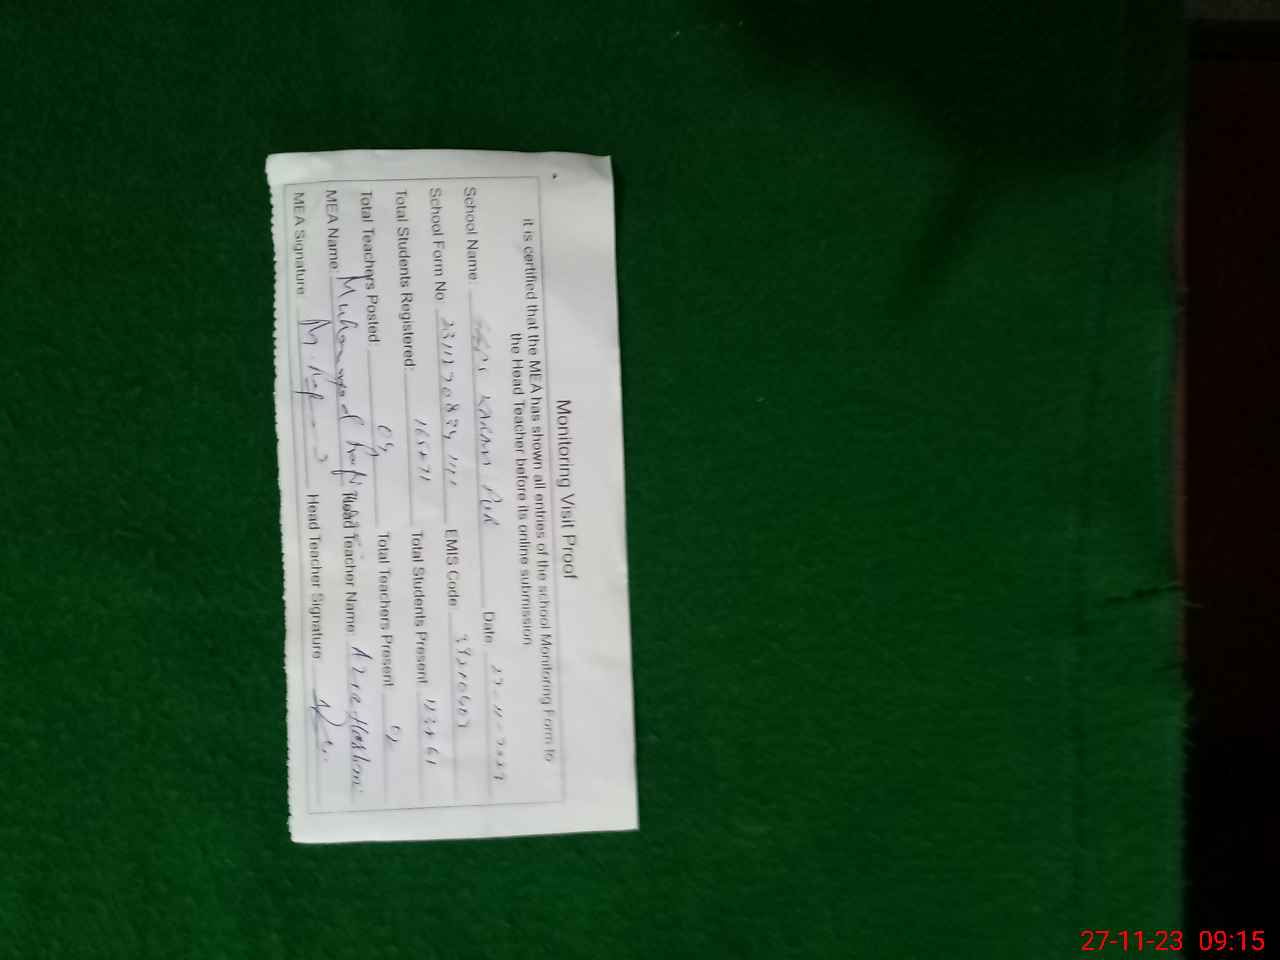 Monitoring Visit Proof
it is certified that the MEA has shown all entries of the school Monitoring Form to
the Head Teacher before its online submission
School Name: KARAM PUR Date 27-11-2023
School Form No EMIS Code
Total Students Registered: 165+71 Total Students Present
Total Teachers Posted: Total Teachers Present
MEA Name: Muhammad Rafi Head Teacher Name: Azra Hashmi
MEA Signature M. Rafi Head Teacher Signature
27-11-23 09:15